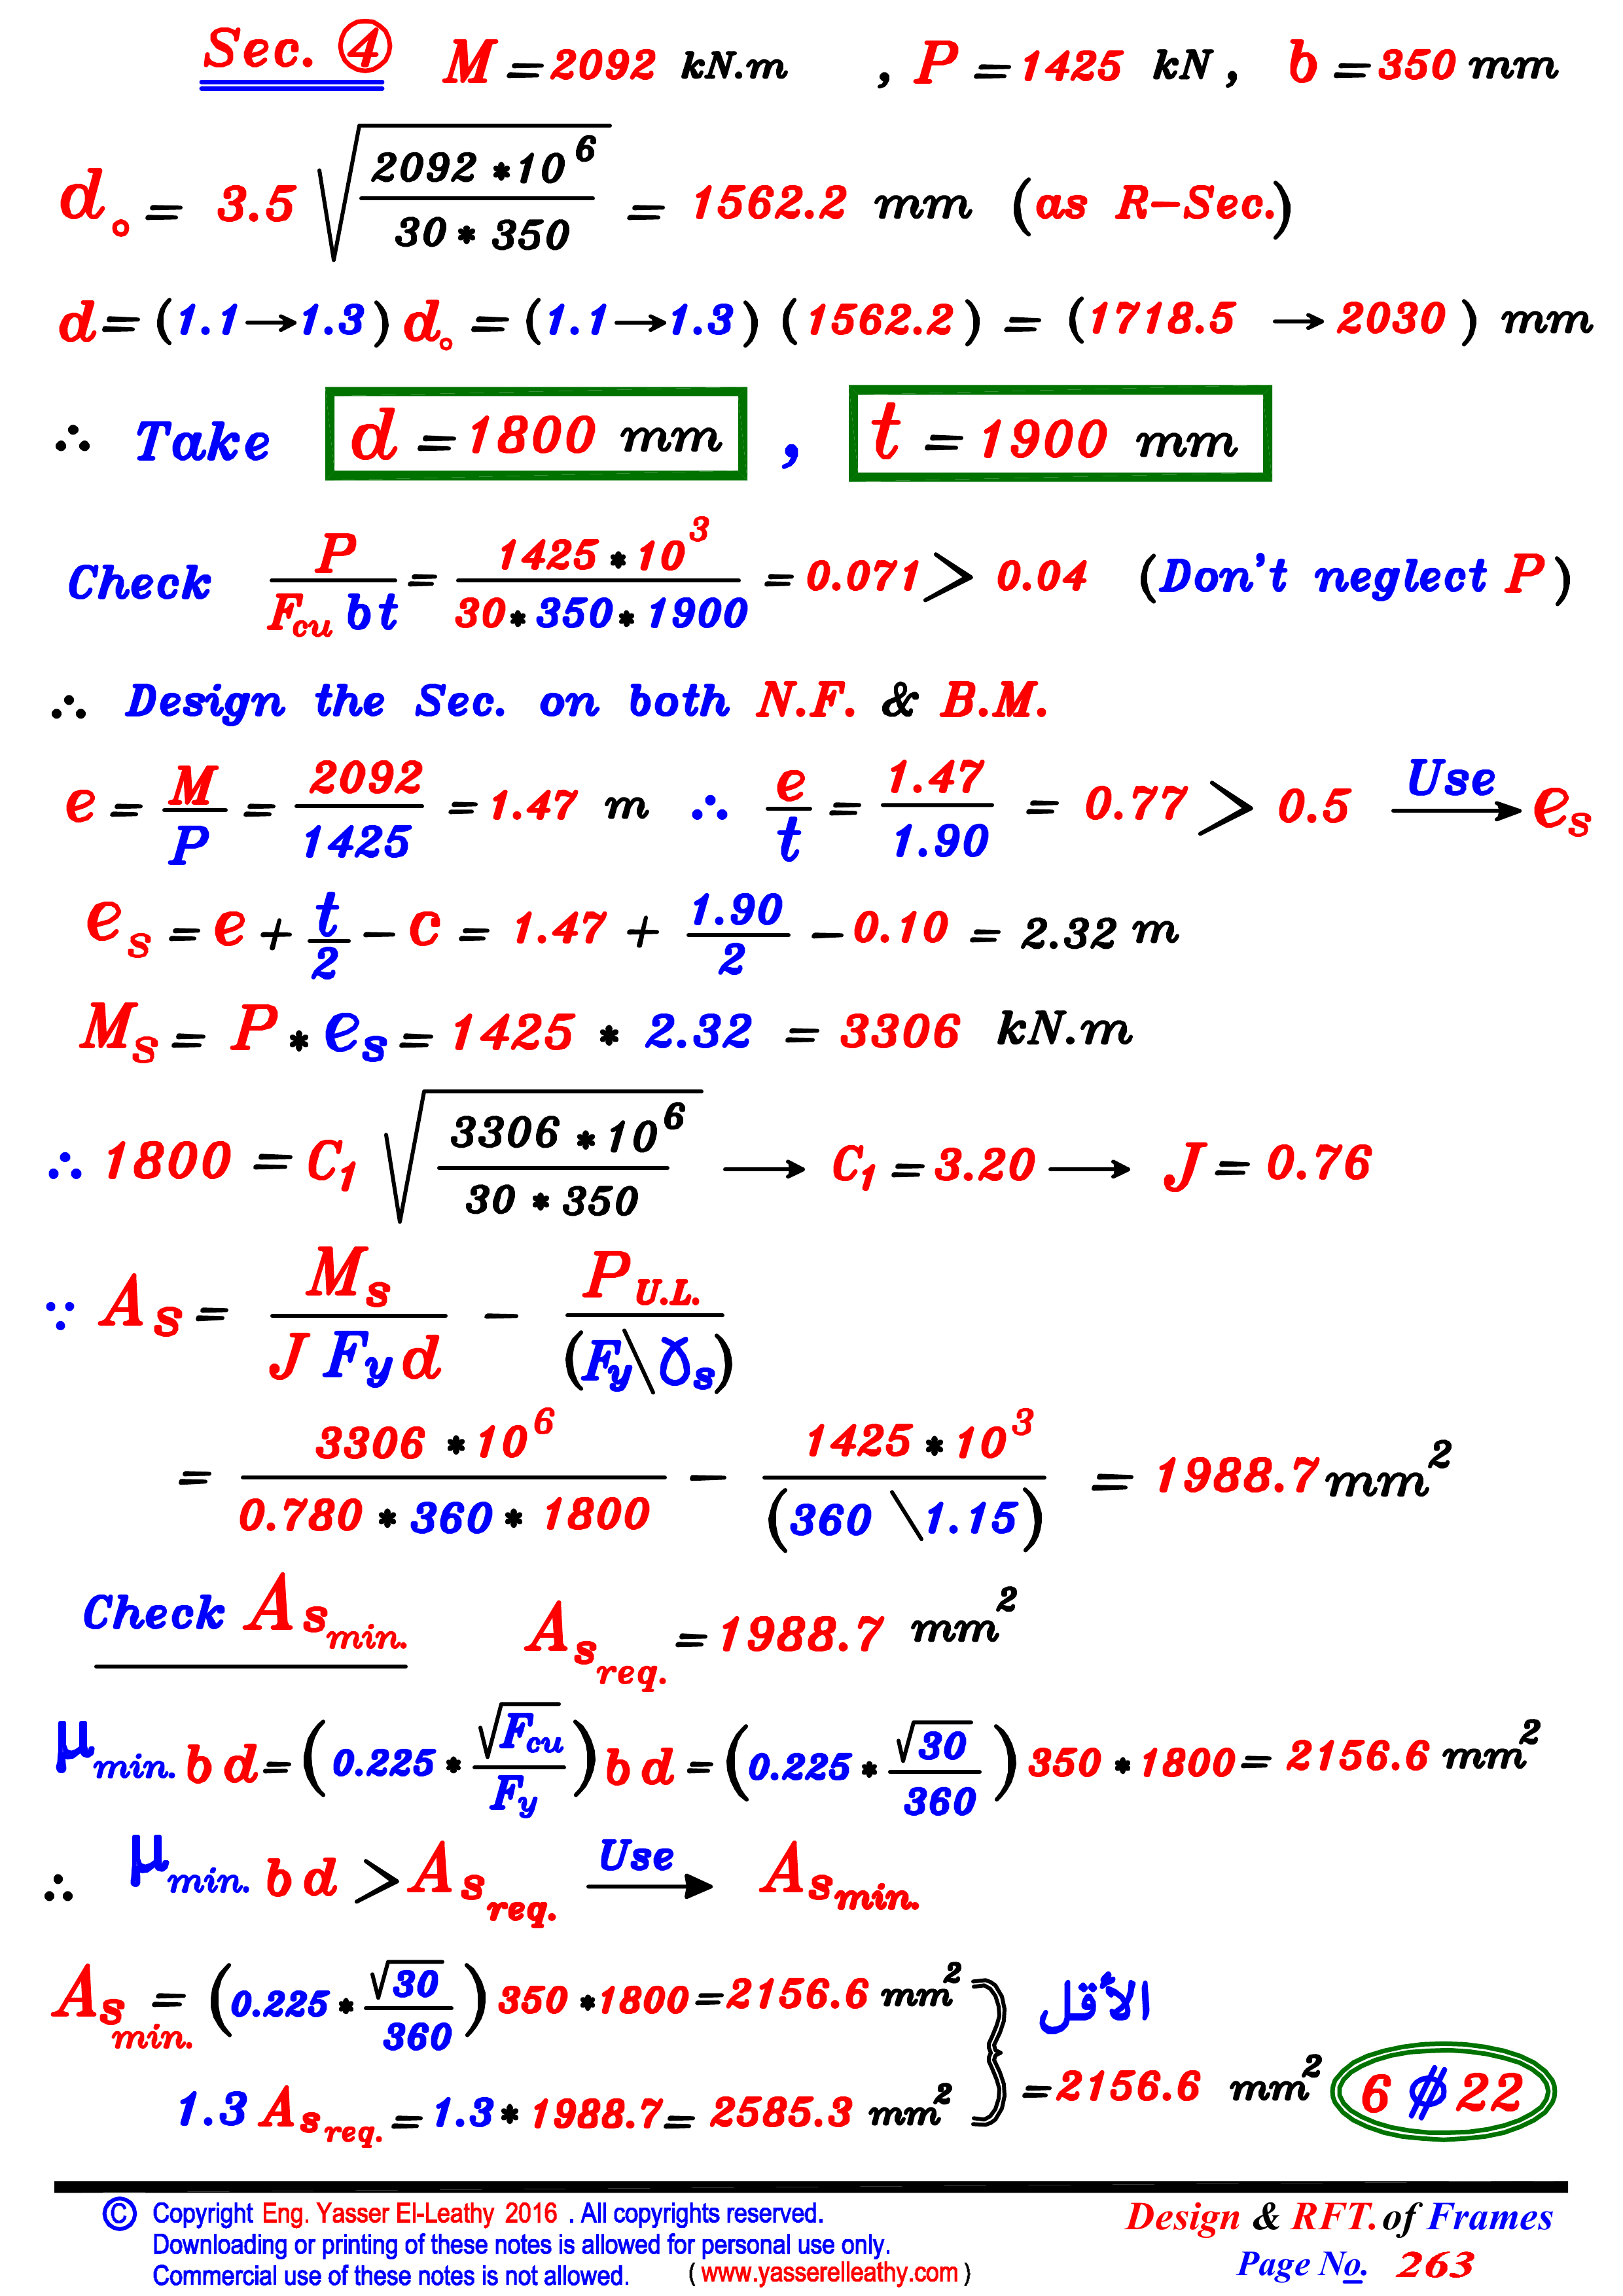 Sec. ④ M = 2092 kN.m , P = 1425 kN , b = 350 mm
d₀ = 3.5 √(2092 * 10⁶ / 30 * 350) = 1562.2 mm (as R-Sec.)
d = (1.1 → 1.3) d₀ = (1.1 → 1.3) (1562.2) = (1718.5 → 2030) mm
∴ Take d = 1800 mm , t = 1900 mm
Check P / F_cu b t = 1425 * 10³ / 30 * 350 * 1900 = 0.071 > 0.04 (Don't neglect P)
∴ Design the Sec. on both N.F. & B.M.
e = M / P = 2092 / 1425 = 1.47 m ∴ e / t = 1.47 / 1.90 = 0.77 > 0.5 Use → e_s
e_s = e + t / 2 − c = 1.47 + 1.90 / 2 − 0.10 = 2.32 m
M_s = P * e_s = 1425 * 2.32 = 3306 kN.m
∴ 1800 = C₁ √(3306 * 10⁶ / 30 * 350) → C₁ = 3.20 → J = 0.76
∵ A_s = M_s / J F_y d − P_U.L. / (F_y \ γ_s)
= 3306 * 10⁶ / 0.780 * 360 * 1800 − 1425 * 10³ / (360 \ 1.15) = 1988.7 mm²
Check A_s min. A_s req. = 1988.7 mm²
μ_min. b d = (0.225 * √F_cu / F_y) b d = (0.225 * √30 / 360) 350 * 1800 = 2156.6 mm²
∴ μ_min. b d > A_s req. Use → A_s min.
A_s min. = (0.225 * √30 / 360) 350 * 1800 = 2156.6 mm² } الأقل
1.3 A_s req. = 1.3 * 1988.7 = 2585.3 mm² } = 2156.6 mm² 6 ⌀ 22
© Copyright Eng. Yasser El-Leathy 2016 . All copyrights reserved.
Downloading or printing of these notes is allowed for personal use only.
Commercial use of these notes is not allowed. ( www.yasserelleathy.com )
Design & RFT. of Frames
Page No. 263